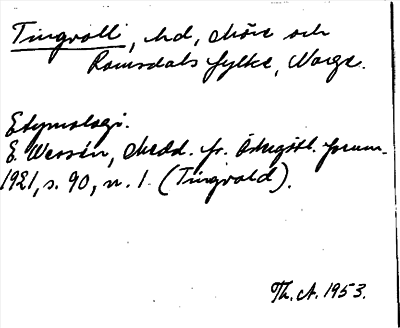 Tingvoll, hd, Møre och
Romsdals fylke, Norge.
Etymologi.
E. Wessén, Medd. fr. Östergötl. fornm.
1921, s. 90, n. 1. (Tingvold).
Th. A. 1953.